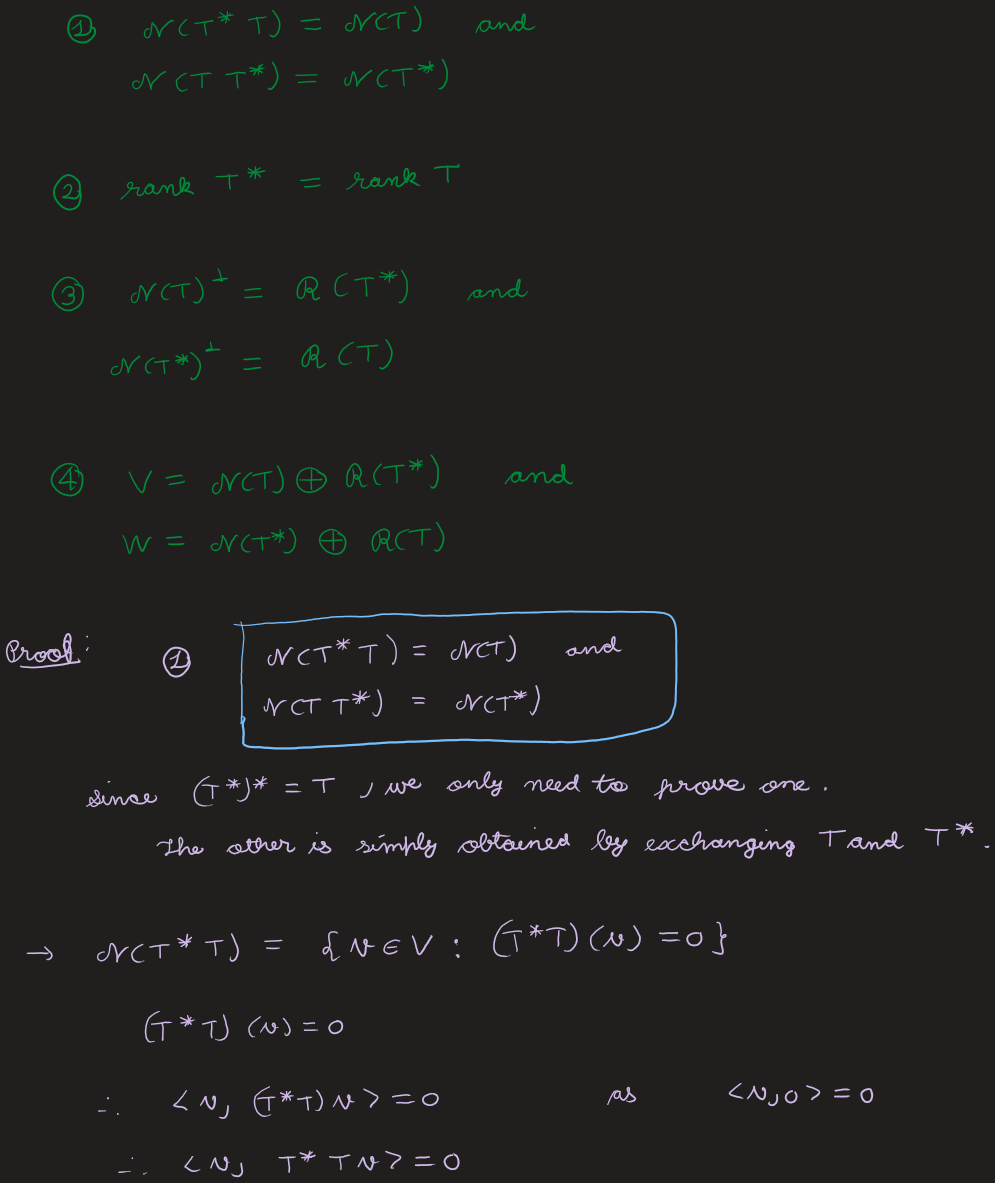 ① N(T* T) = N(T) and
N(T T*) = N(T*)
② rank T* = rank T
③ N(T)⊥ = R(T*) and
N(T*)⊥ = R(T)
④ V = N(T) ⊕ R(T*) and
W = N(T*) ⊕ R(T)
Proof: ① N(T* T) = N(T) and
N(T T*) = N(T*)
since (T*)* = T , we only need to prove one .
The other is simply obtained by exchanging T and T* .
→ N(T* T) = {v ∈ V : (T*T)(v) = 0}
(T* T) (v) = 0
∴ <v, (T*T) v> = 0 as <v,0> = 0
∴ <v, T* T v> = 0